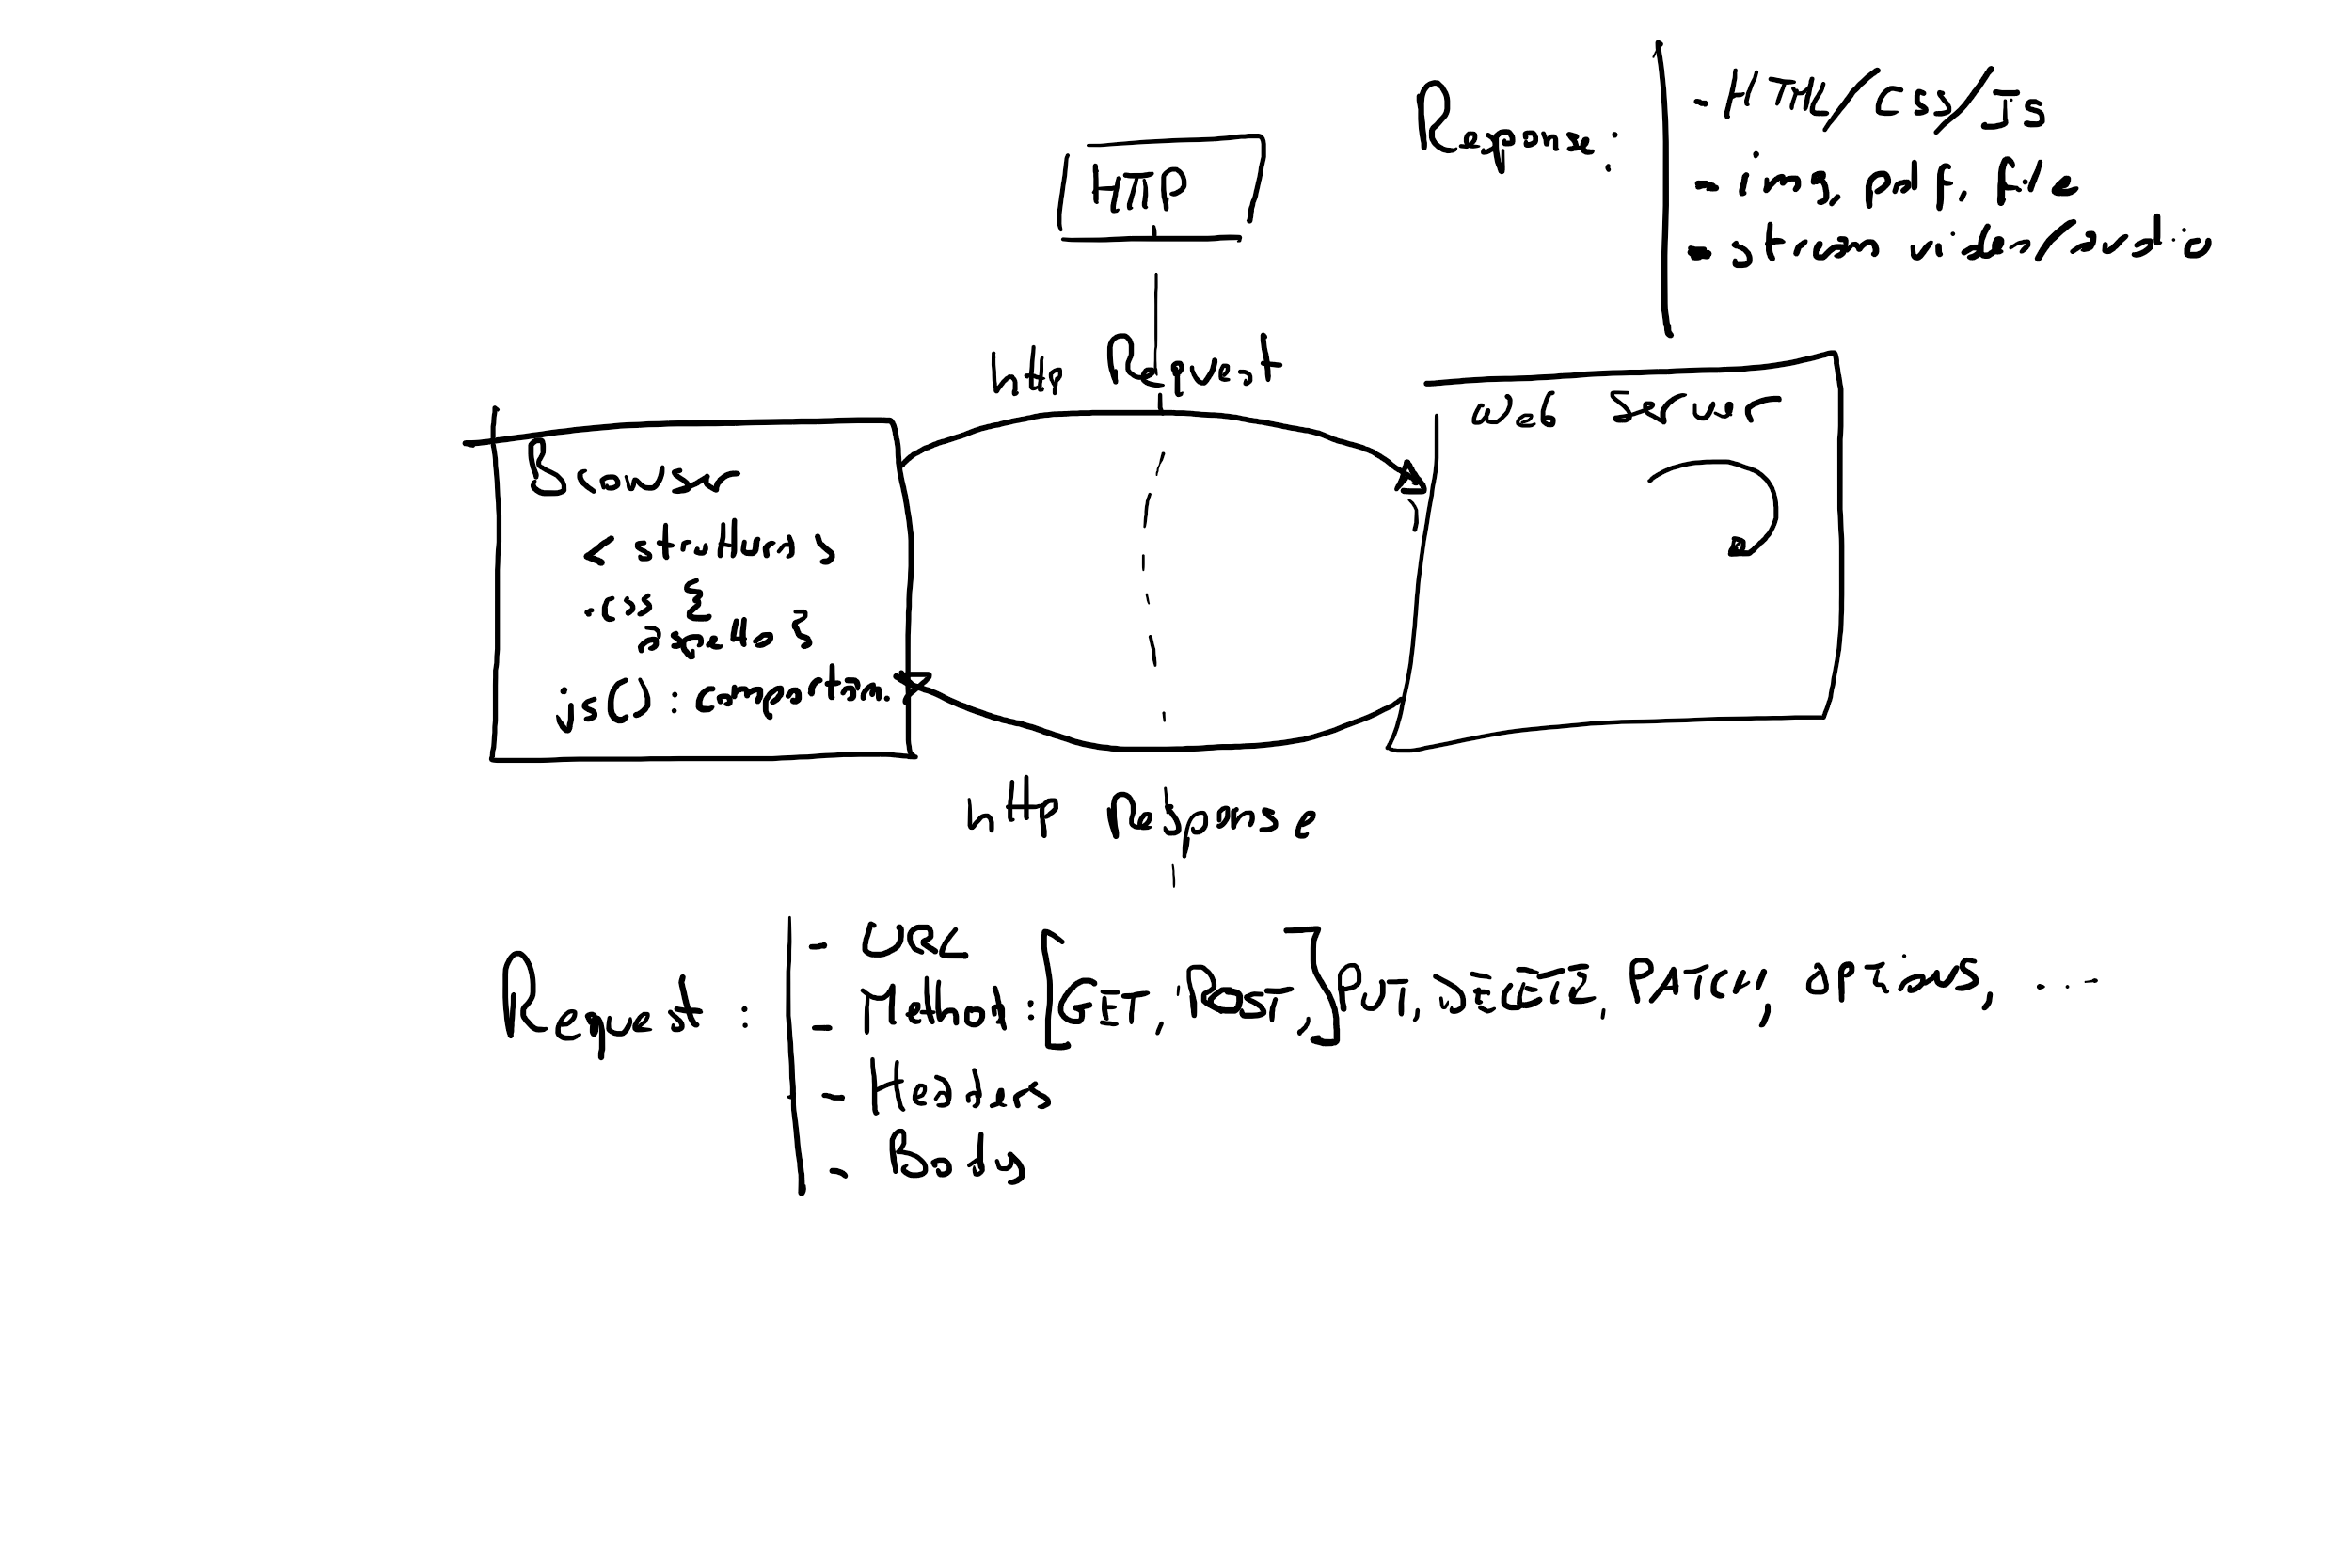 Response:
- HTML/CSS/JS
- img, pdf, file
- stream video/audio
HTTP
http Request
Browser
< struttura >
.css {
aspetto }
js() : comportam.
web server
http Response
Request :
- URL
- Method : [GET, POST,] PUT, DELETE, PATCH, OPTIONS, ...
- Headers
- Body